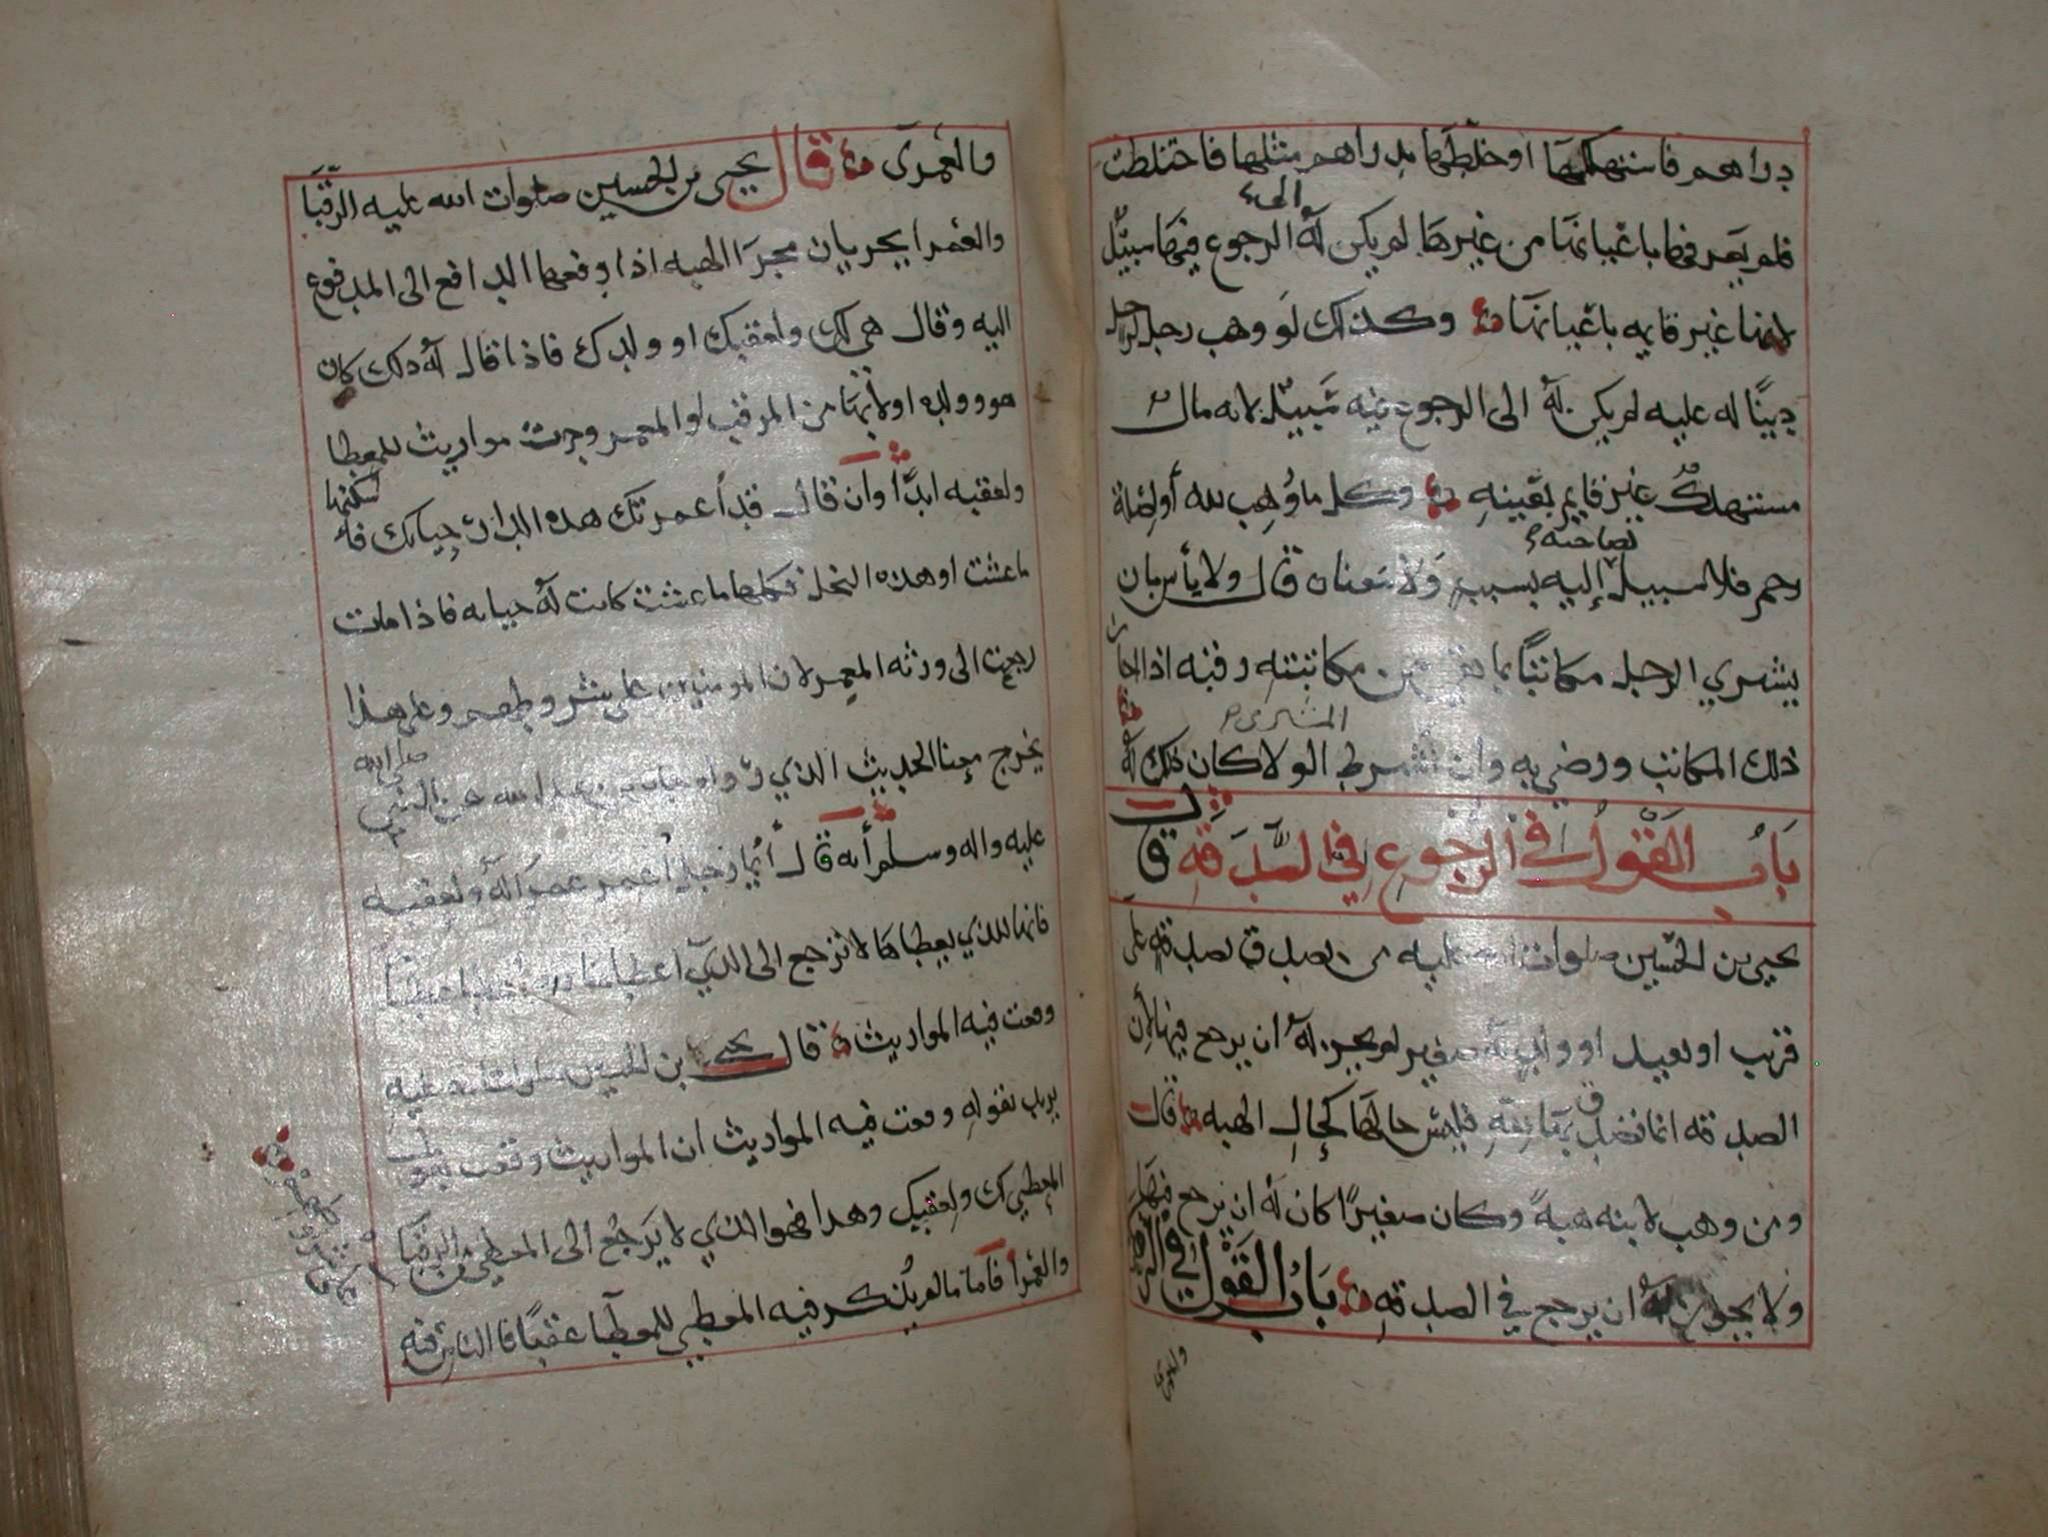 دراهم فاستهلكها او خلطها بدراهم مثلها فاختلطت
فلم يعرفها باعيانها من غيرها لم يكن له الى الرجوع فيها سبيل
لانها غير قايمه باعيانها وكذلك لو وهب رجل لرجل
دينًا له عليه لم يكن له الى الرجوع فيه سبيل لانه مال
مستهلك غير قايم بعينه وكل ما وُهب لله أو لصلة
رحم فلا سبيل لصاحبه إليه بسبب ولا معنا قال ولا بأس بان
يشري الرجل مكاتبًا بما بقي من مكاتبته وفيه اذا اجاز
ذلك المكاتب ورضي به وان شرط المشترى الولا كان ذلك له
بَابُ القَوْل في الرجوع في الصَّدَقة قال
يحيى بن الحسين صلوات الله عليه من تصدق بصدقة على
قريب او بعيد او ولد له صغير لم يجز له ان يرجع فيها لأن
الصدقه انما فليس حالها كحال الهبه قال
ومن وهب لابنه هبةً وكان صغيرًا كان له ان يرجع فيها
ولا يجوز له ان يرجع في الصدقه بَابُ القَوْل في الرقبى
والعمرى
والعمرى قال يحيى بن الحسين صلوات الله عليه الرقبَا
والعمرا يجريان مجرَا الهبه اذا دفعها الدافع الى المدفوع
اليه وقال هي لك ولعقبك او ولدك فاذا قال له ذلك كان
هو وولده اولا بها من المرقب او المعمر وجرت مواريث للمعطا
ولعقبه ابدًا وان قال قد أعمرتك هذه الدار حياتك فلك سكنها
ما عشت او هذه النخل فكلها ما عشت كانت له حياته فاذا مات
رجعت الى ورثه المعمر لان المومنين على شروطهم وعلى هذا
يخرج معنا الحديث الذي رواه جابر بن عبد الله عن النبي صلى الله
عليه واله وسلم أنه قال أيما رجل أعمر عمرًا له ولعقبه
فانها للذي يعطاها لا ترجع الى الذي أعطاها لانه أعطا عطيًا
وقعت فيه المواريث قال يحيى ابن الحسين صلوات الله عليه
يريد بقوله وقعت فيه المواريث ان المواريث وقعت بقول
المعطي لك ولعقبك وهذا فهوا الذي لا يَرجعُ الى المعطي من الرقبَا
والعُمرا فأما ما لم يذكر فيه المعطي للمعطا عقبًا فالناس فيه